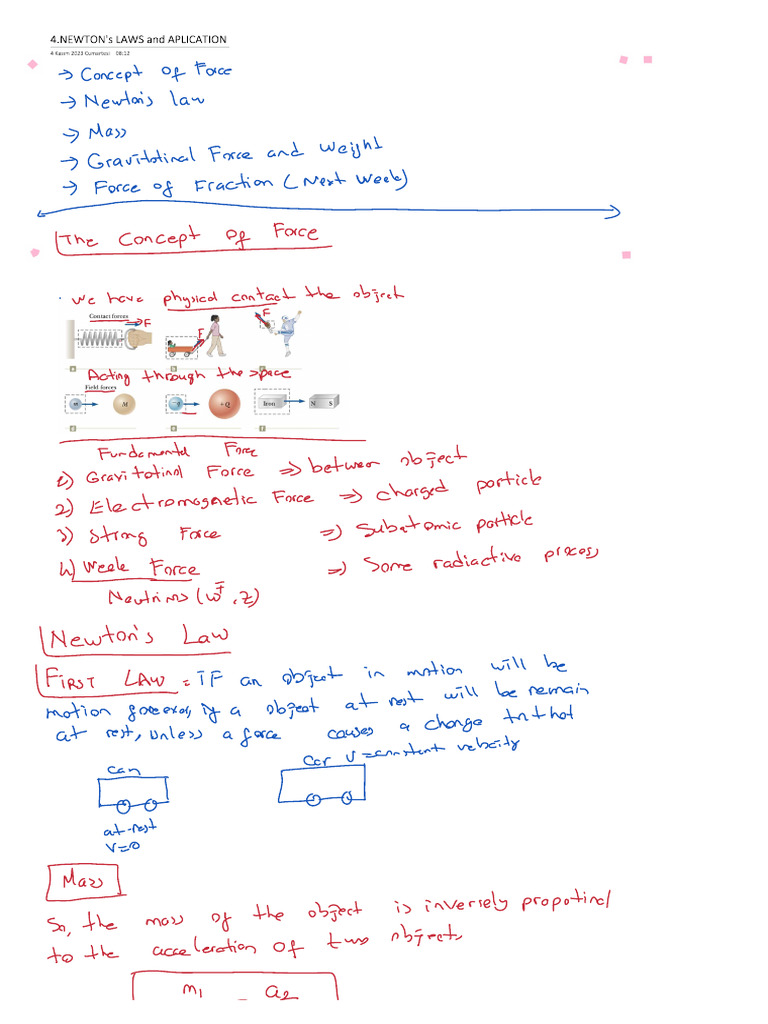 4.NEWTON's LAWS and APLICATION
4 Kasım 2023 Cumartesi 08:12
→ Concept of Force
→ Newton's law
→ Mass
→ Gravitotinal Force and weight
→ Force of Fraction (Next Week)
The Concept of Force
· We have physical contact the object
Contact forces
F
F
F
a
b
c
Acting through the space
Field forces
m
M
−q
+Q
Iron
N S
d
e
f
Fundamental Force
1) Gravitotinal Force => between object
2) Electromagnetic Force => charged particle
3) Strong Force => Subatomic particle
4) Week Force => Some radiactive process
(W∓, Z)
Newton's Law
FIRST LAW = IF an object in motion will be
motion if a object at rest will be remain
at rest, unless a force causes a change
Car V = constant velocity
at-rest
V=0
Mass
So, the mass of the object is inversely propotinal
to the acceleration of two objects
m1 = a2